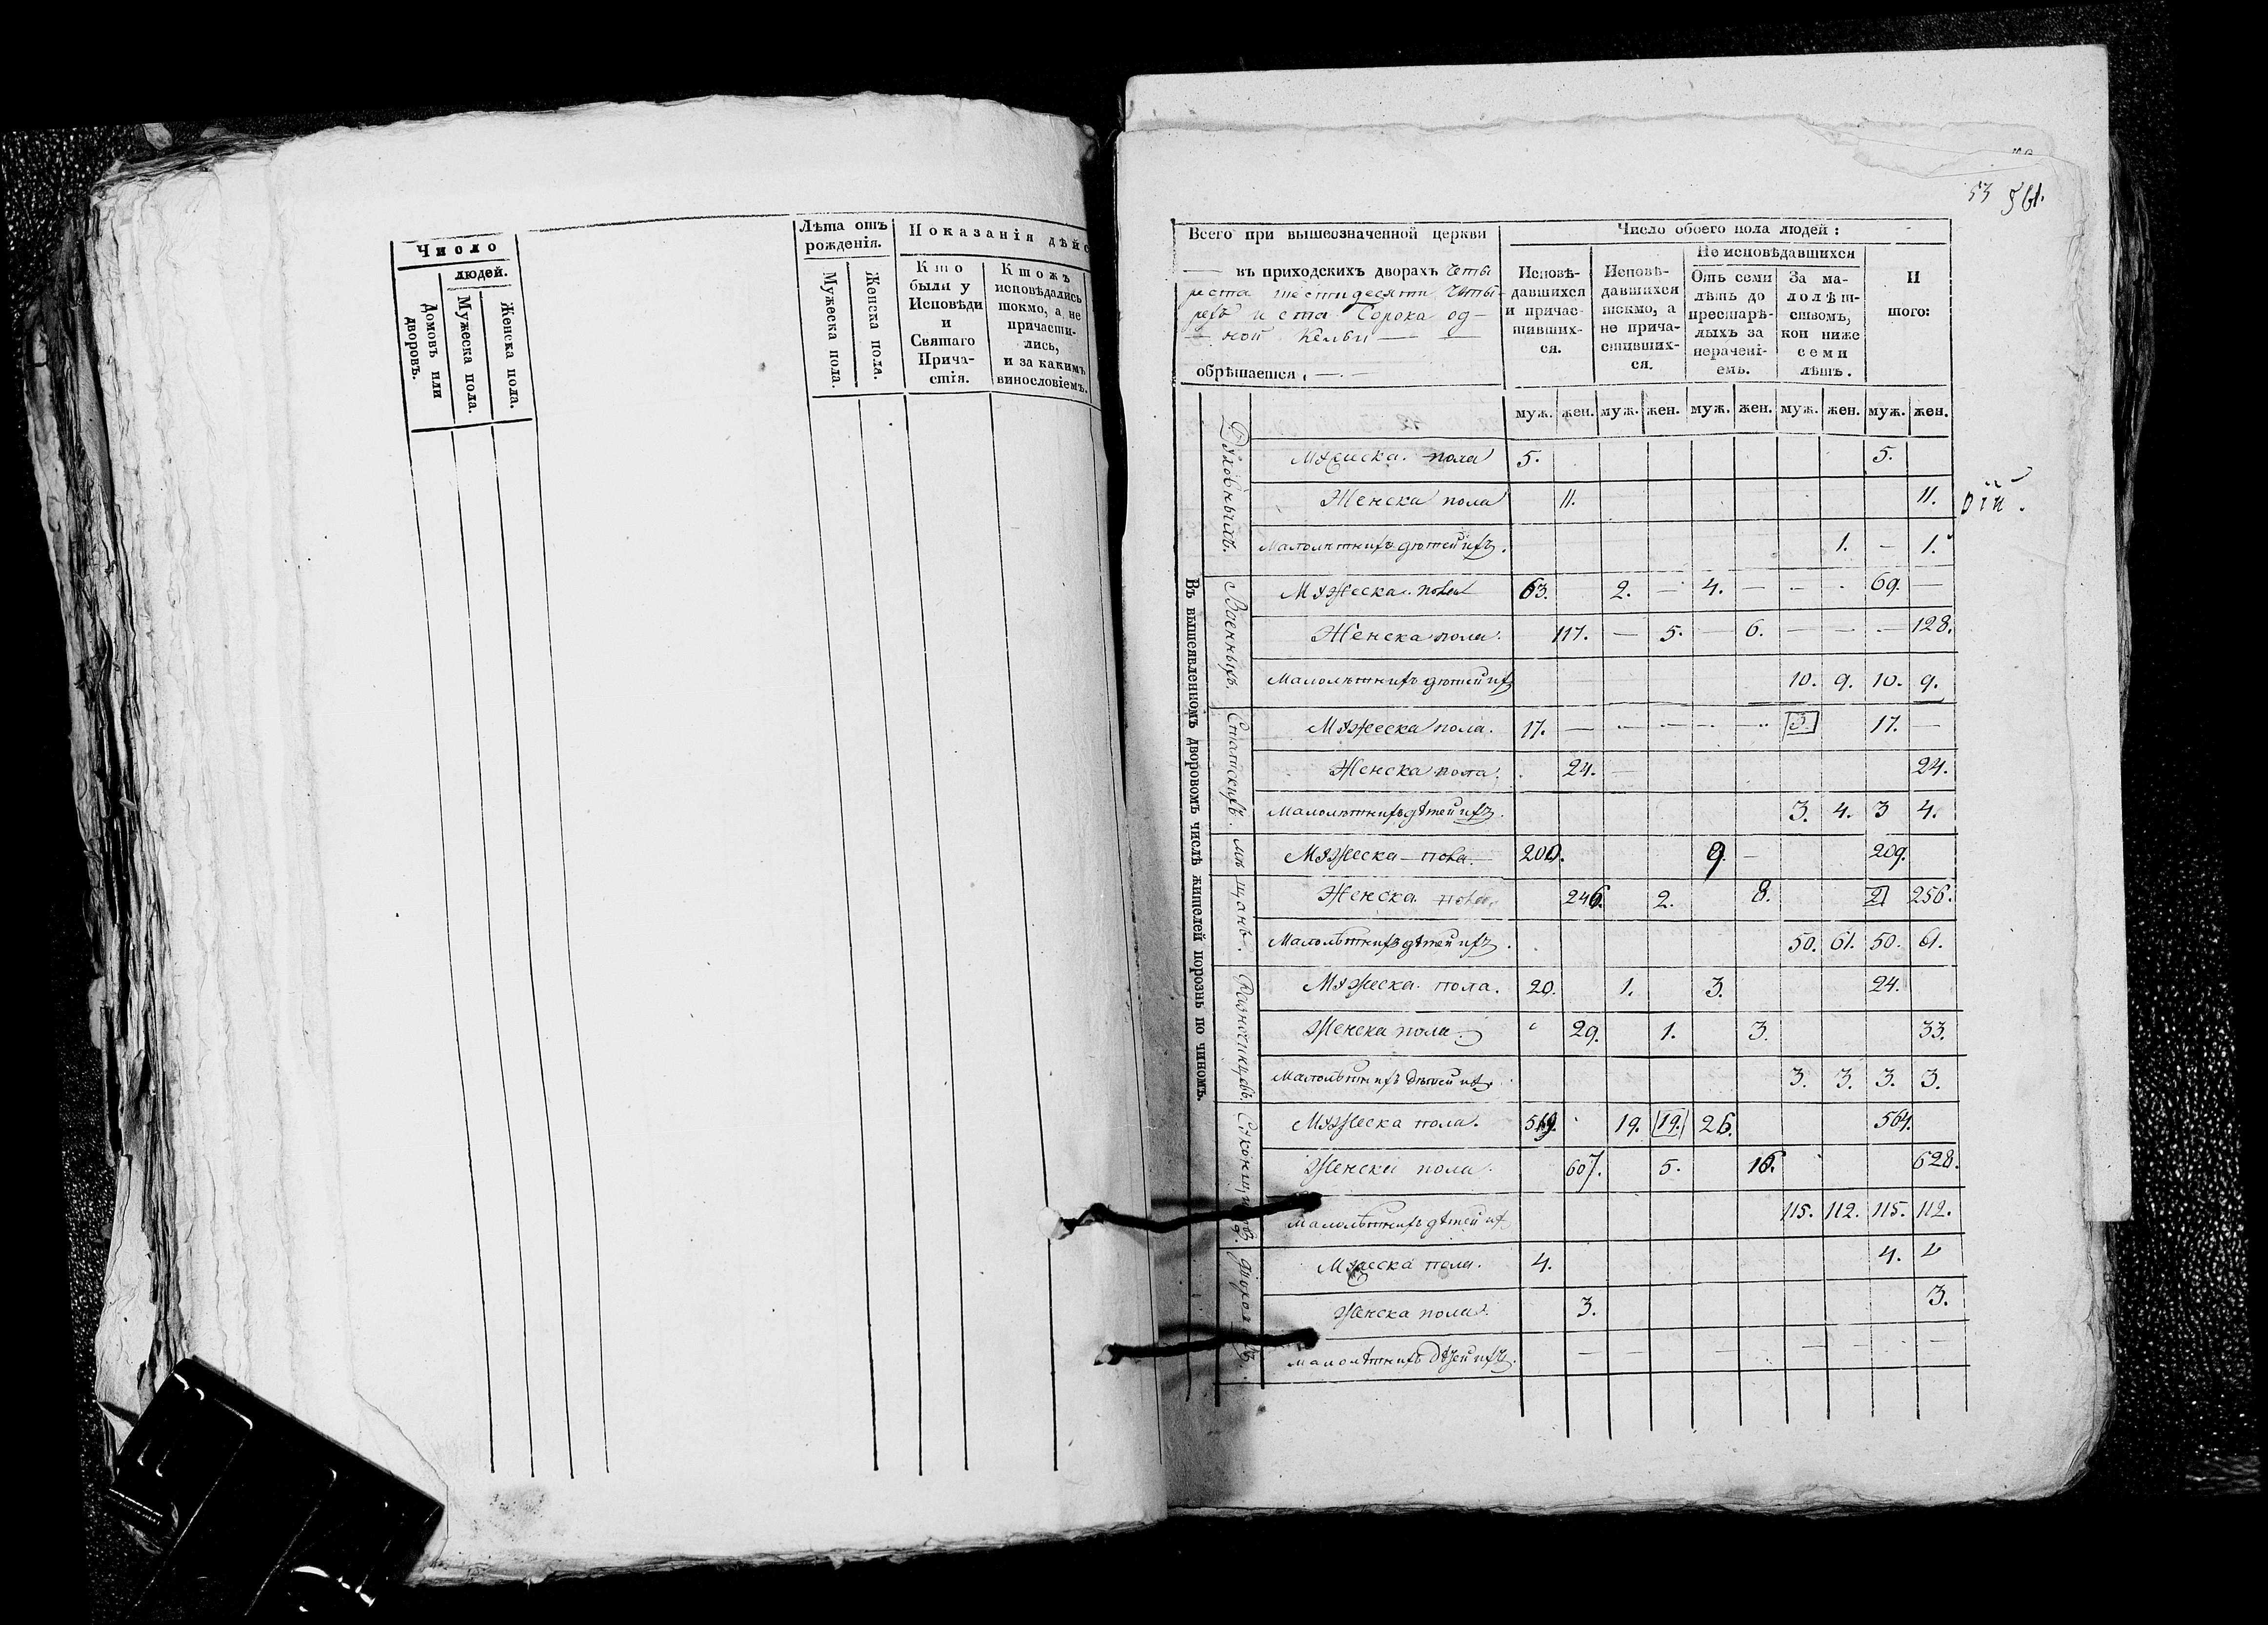 Число
людей.
Домовъ или
дворовъ.
Мужеска пола.
Женска пола.
Лѣта отъ
рожденія.
Мужеска пола.
Женска пола.
Показанія дѣйс
Кто
были у
Исповѣди
и
Святаго
Прича-
стія.
Ктожъ
исповѣдались
токмо, а не
причасти-
лись,
и за какимъ
винословіемъ.
53 561.
Всего при вышеозначенной церкви
въ приходскихъ дворахъ четы
реста шестидесяти четы-
рехъ и ста Сорока од-
ной Кельи
обрѣтается,
Число обоего пола людей:
Исповѣ-
давшихся
и причас-
тивших-
ся.
Исповѣ-
давшихся
токмо, а
не прича-
стивших-
ся.
Не исповѣдавшихся
Отъ семи
лѣтъ до
престарѣ-
лыхъ за
нерачені-
емъ.
За ма-
лолѣт-
ствомъ,
кои ниже
семи
лѣтъ.
И
того:
муж. жен. муж. жен. муж. жен. муж. жен. муж. жен.
Въ вышеявленномъ дворовомъ числѣ жителей порознь по чиномъ.
Духовныхъ.
Мужеска пола 5. 5.
Женска пола 11. 11.
Малолѣтнихъ дѣтей ихъ. 1. — 1.
Военныхъ.
Мужеска пола 63. 2. — 4. — — 69. —
Женска пола. 117. — 5. — 6. — — — 128.
Малолѣтнихъ дѣтей ихъ 10. 9. 10. 9.
Статскихъ.
Мужеска пола. 17. — 3. 17. —
Женска пола. 24. — 24.
Малолѣтнихъ дѣтей ихъ. 3. 4. 3 4.
Мѣщанъ.
Мужеска пола. 200. 9. — 209.
Женска пола. 246. 2. 8. 2 256.
Малолѣтнихъ дѣтей ихъ. 50. 61. 50. 61.
Разночинцевъ.
Мужеска пола. 20. 1. 3. 24.
Женска пола. 29. 1. 3. 33.
Малолѣтнихъ дѣтей ихъ. 3. 3. 3. 3.
Мужеска пола. 519. 19. 19. 26. 564.
Женска пола. 607. 5. 16. 628.
Малолѣтнихъ дѣтей их 115. 112. 115. 112.
Мужеска пола. 4. 4.
Женска пола. 3. 3.
Малолѣтнихъ дѣтей ихъ. — — — — — — —